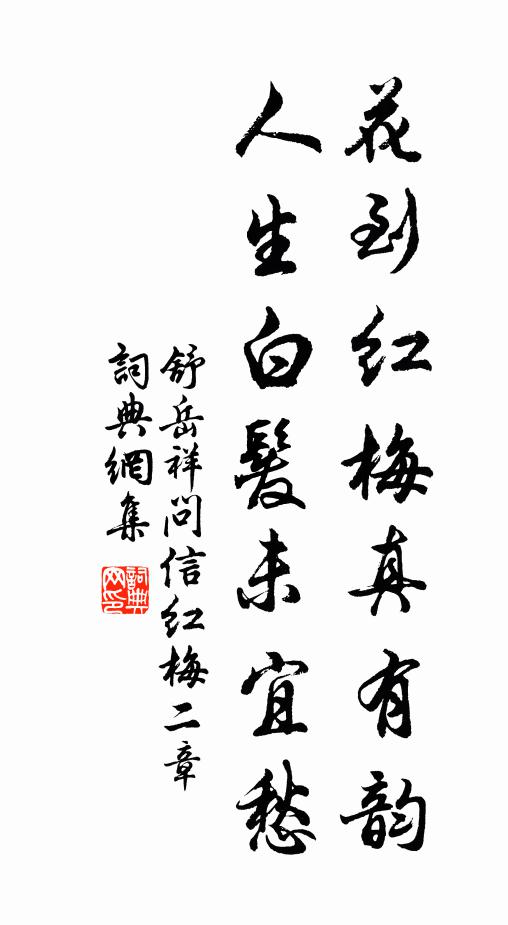 花到红梅真有韵
人生白髮未宜愁
舒岳祥问信红梅二章
詞典網集
詞典网印